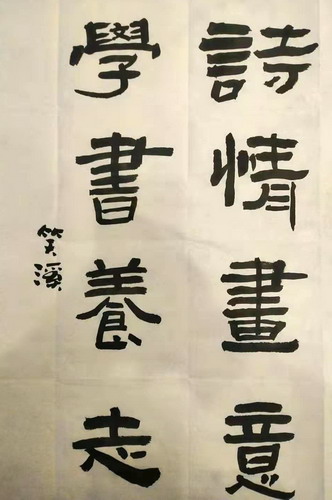 詩情畫意
學書養志
笑溪